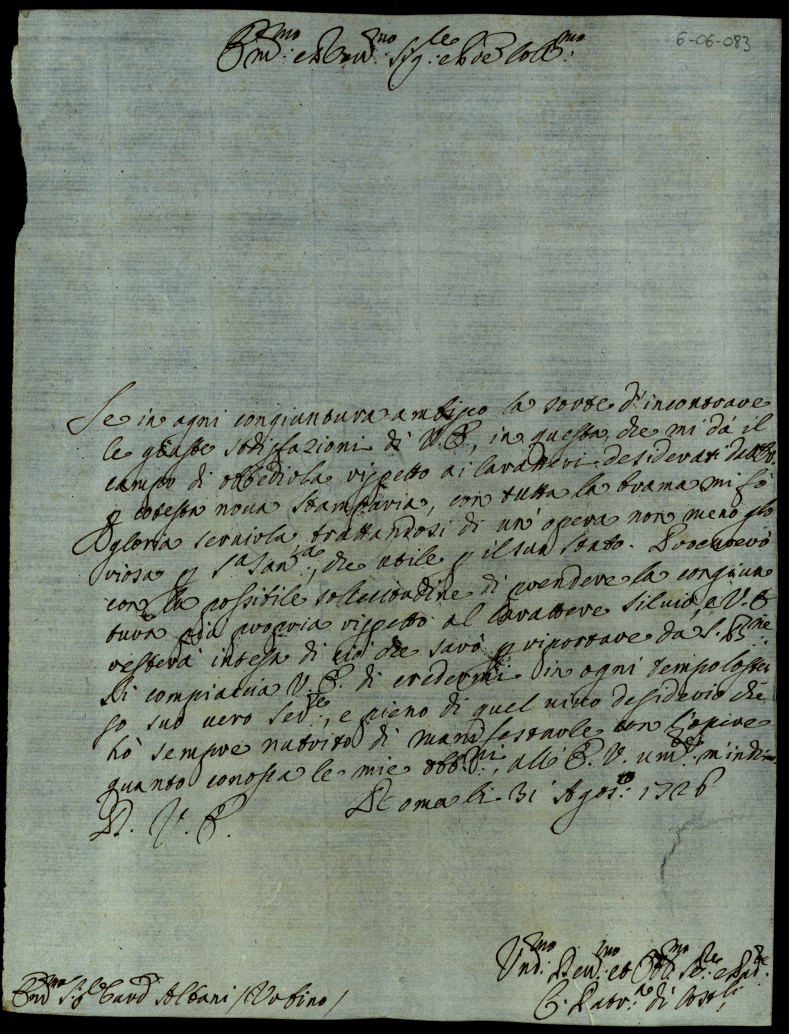 6-06-083
Em.mo e Rev.mo Sig.re e P.ne Coll.mo
Se in ogni congiuntura ambisco la sorte d'incontrare
le giuste sodisfazioni di V.E., in questa, che mi dà il
campo di obbedirla rispetto ai Caratteri desiderati
p cotesta nova stamparia, con tutta la brama mi fò
gloria servirla, trattandosi di un'opera non meno glo
riosa p S.a San.tà, che utile p il suo stato. Procurerò
con la possibile sollecitudine di prendere la congiun
tura più propria rispetto al Carattere Silvio, e V.E.
resterà intesa di ciò che sarò p riportare da S. B.ne
Si compiaccia V.E. di credermi in ogni tempo l'istes
so suo vero Ser.re, e pieno di quel vivo desiderio che
hò sempre nutrito di manifestarle con l'opere
quanto conosca le mie obb.ni, all'E.V. um.te m'inchino
D. V. E. Roma li 31 Agos.to 1726
Um.mo Dev.mo et Obb.mo Ser.re
C. Patr.ca di
Em.mo S.r Card. Albani /Urbino/